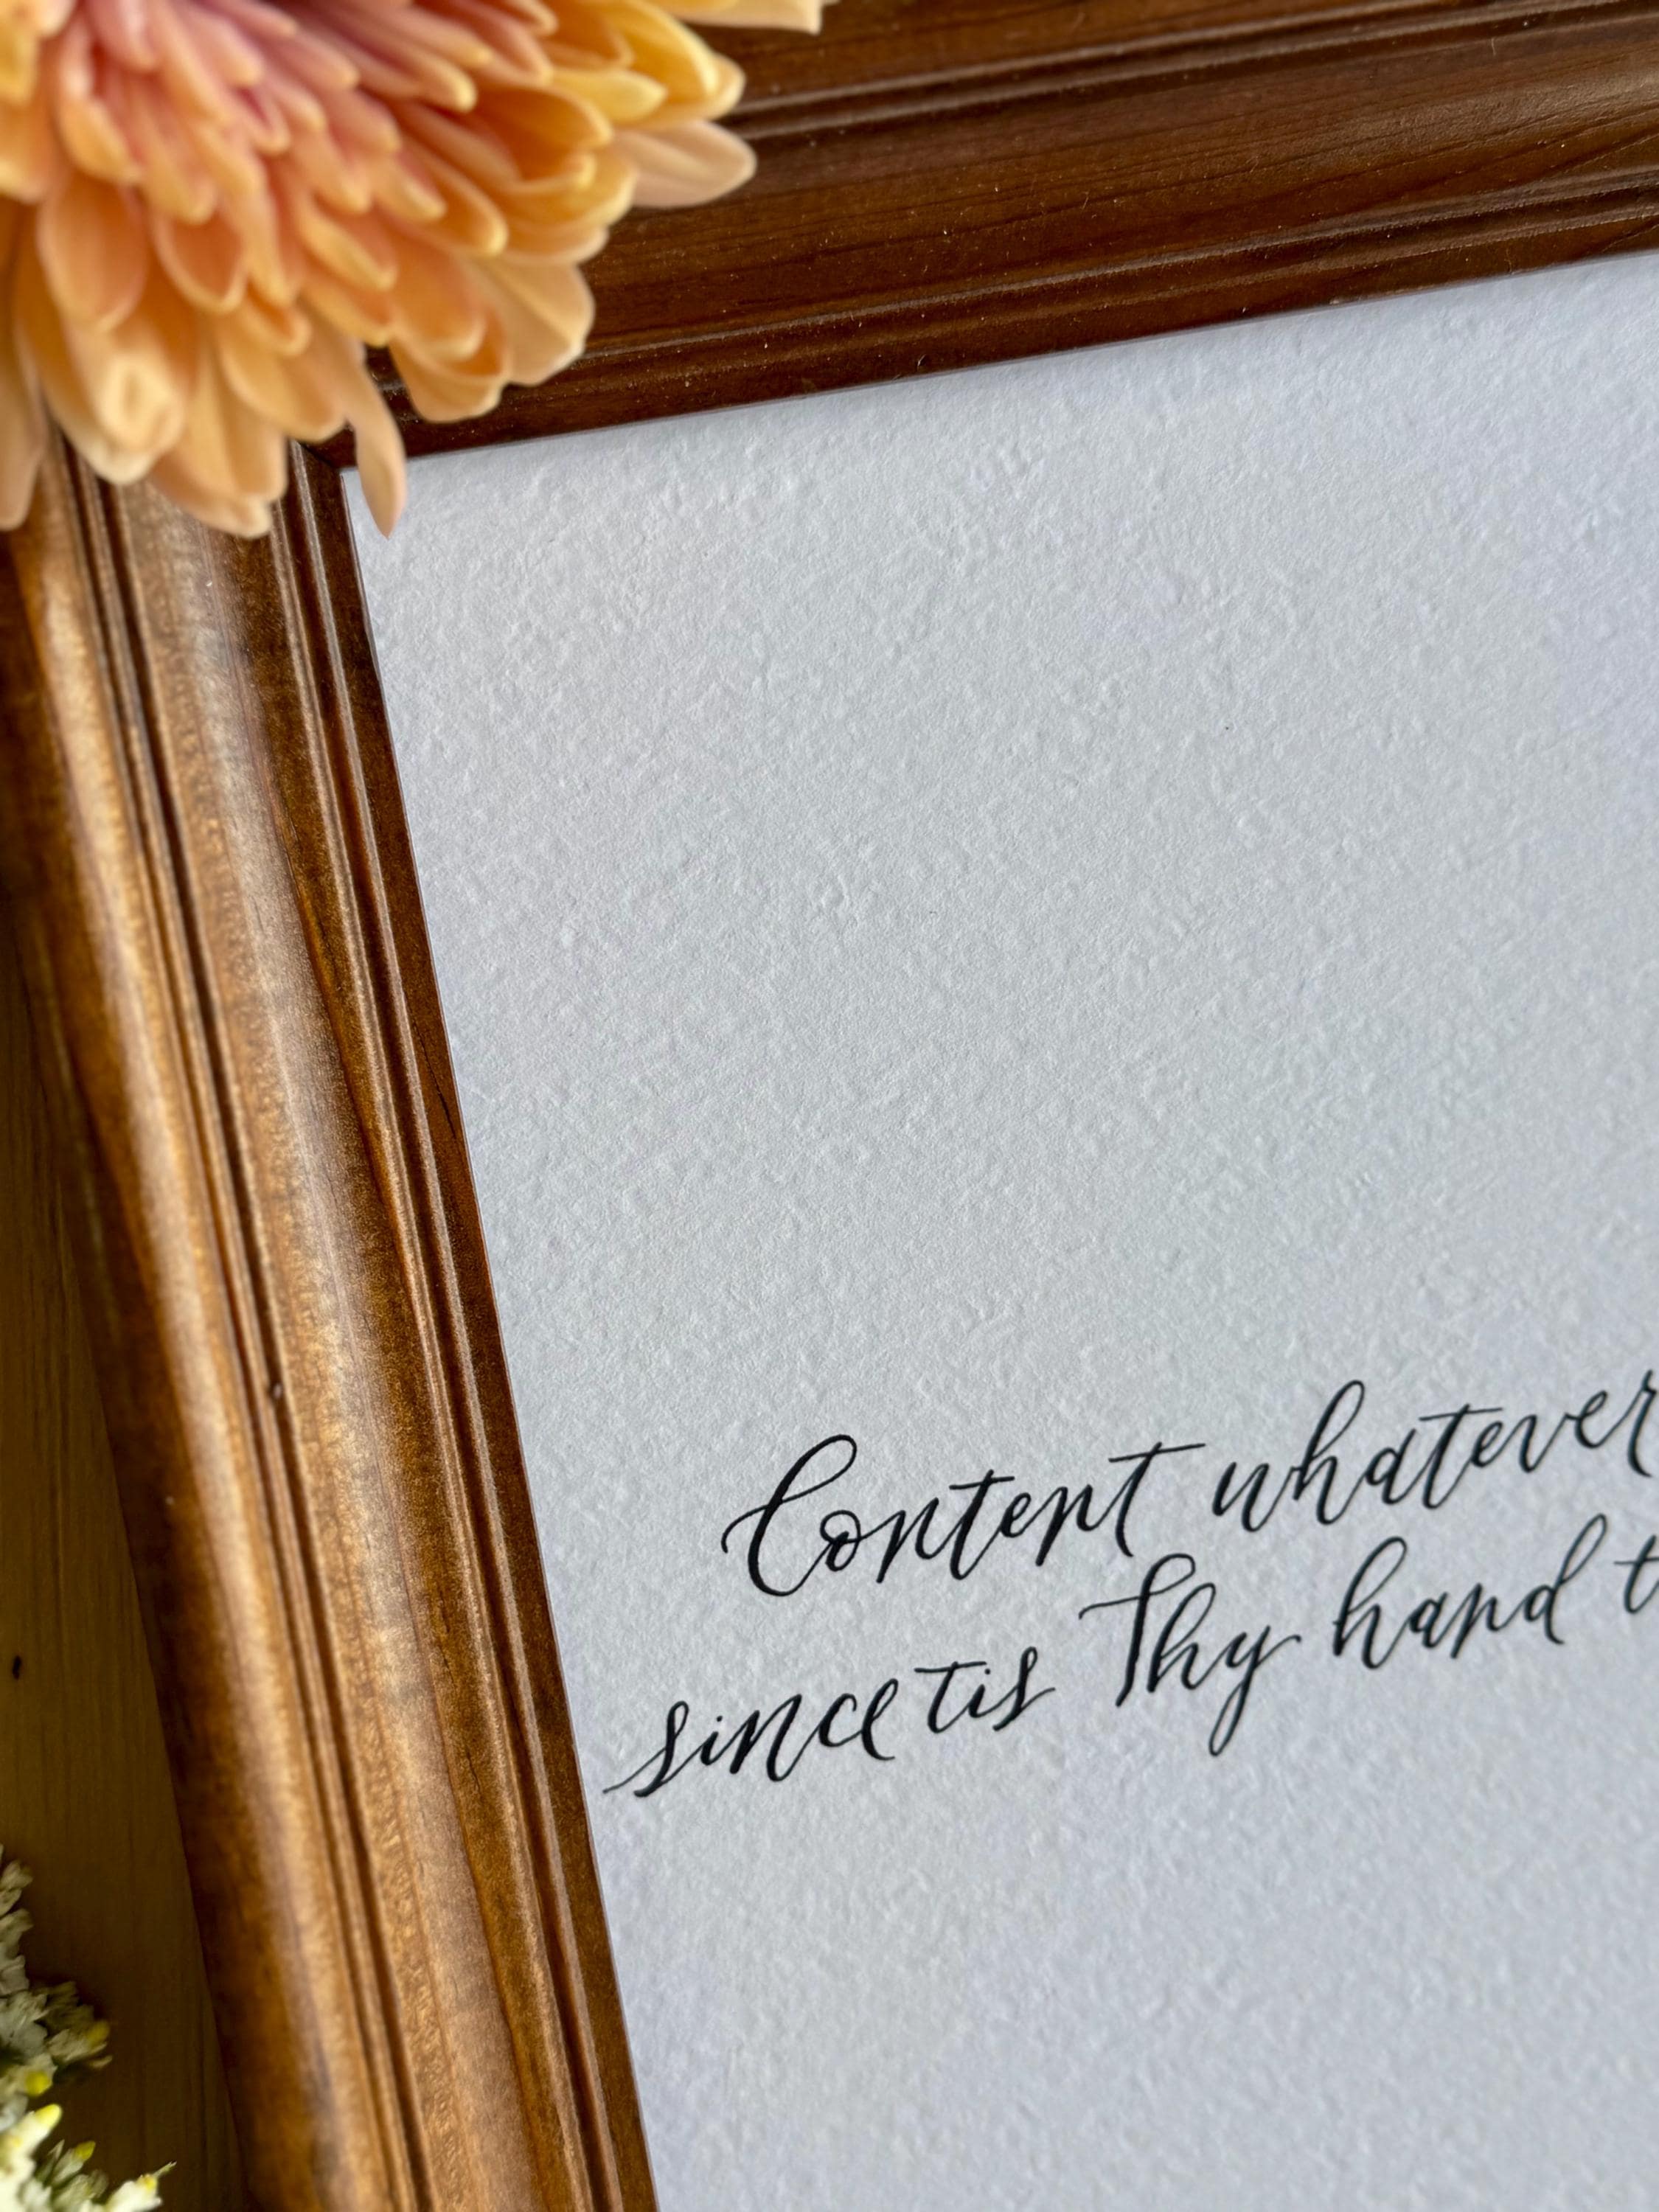 Content whatever
since tis Thy hand t